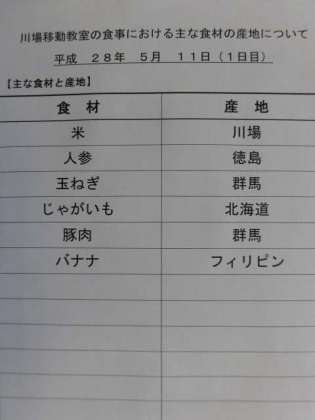 川場移動教室の食事における主な食材の産地について
平成　２８年　５月　１１日（１日目）
【主な食材と産地】
食　材　産　地
米　川場
人参　徳島
玉ねぎ　群馬
じゃがいも　北海道
豚肉　群馬
バナナ　フィリピン